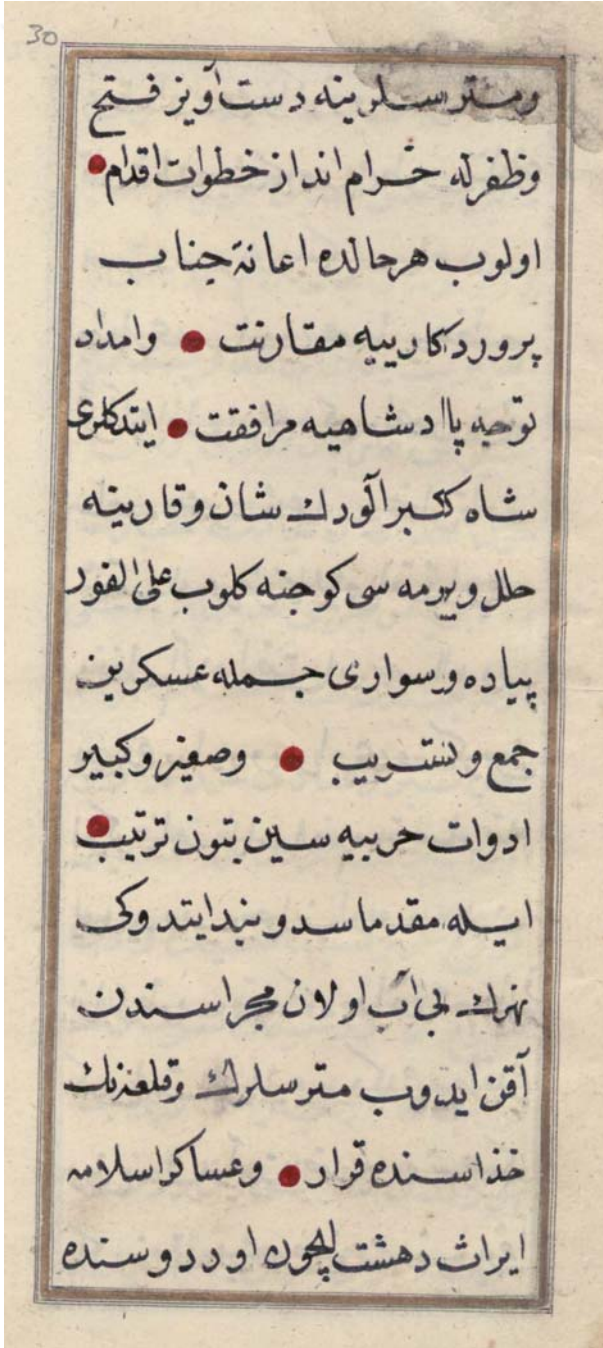 30
ومترسلرينه دست آويز فتح
وظفرله خرام انداز خطوات اقدام
اولوب هرحالده اعانهٔ جناب
پروردكارييه مقارنت وامداد
توجه پاادشاهيه مرافقت ايتدكلرى
شاه كبرآلودك شان وقارينه
خلل ويرمه سى كوجنه كلوب على الفور
پياده وسوارى جمله عسكرين
جمع وتسريب وصغير وكبير
ادوات حربيه سين بتون ترتيب
ايله مقدما سد وبند ايتدوكى
نهرك بى آب اولان مجراسندن
آقن ايدوب مترسلرك وقلعه نك
حذاسنده قرار وعساكر اسلامه
ايراث دهشت ايچون اوردوسنده